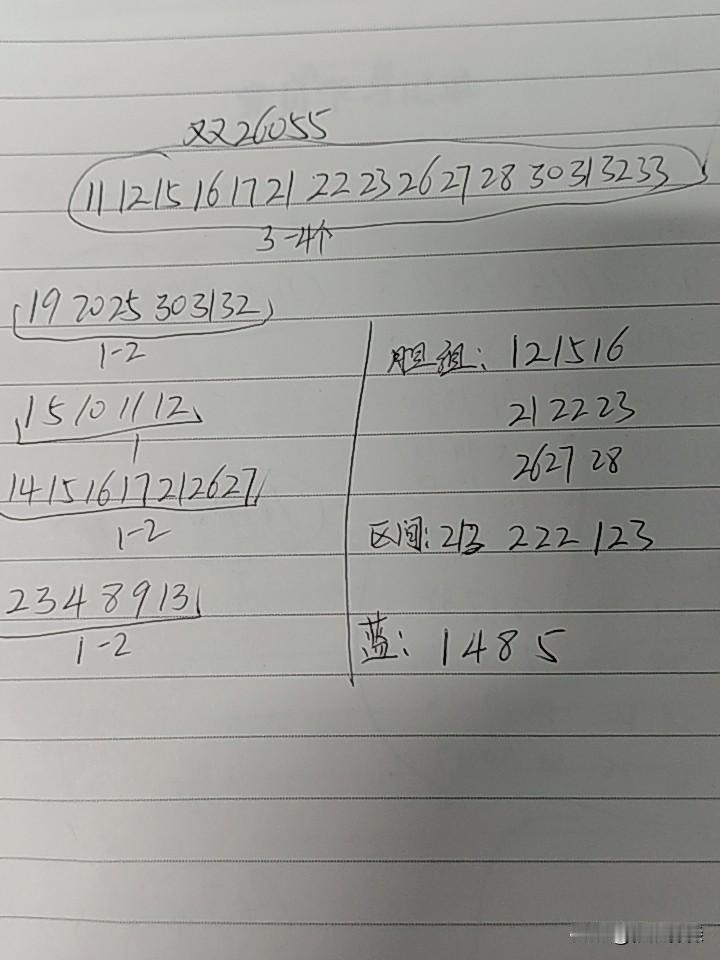 双26055
11 12 15 16 17 21 22 23 26 27 28 30 31 32 33
3-4个
19 20 25 30 31 32
1-2
1 5 10 11 12
1
14 15 16 17 21 26 27
1-2
2 3 4 8 9 13
1-2
胆组: 12 15 16
21 22 23
26 27 28
区间: 213 222 123
蓝: 1 4 8 5